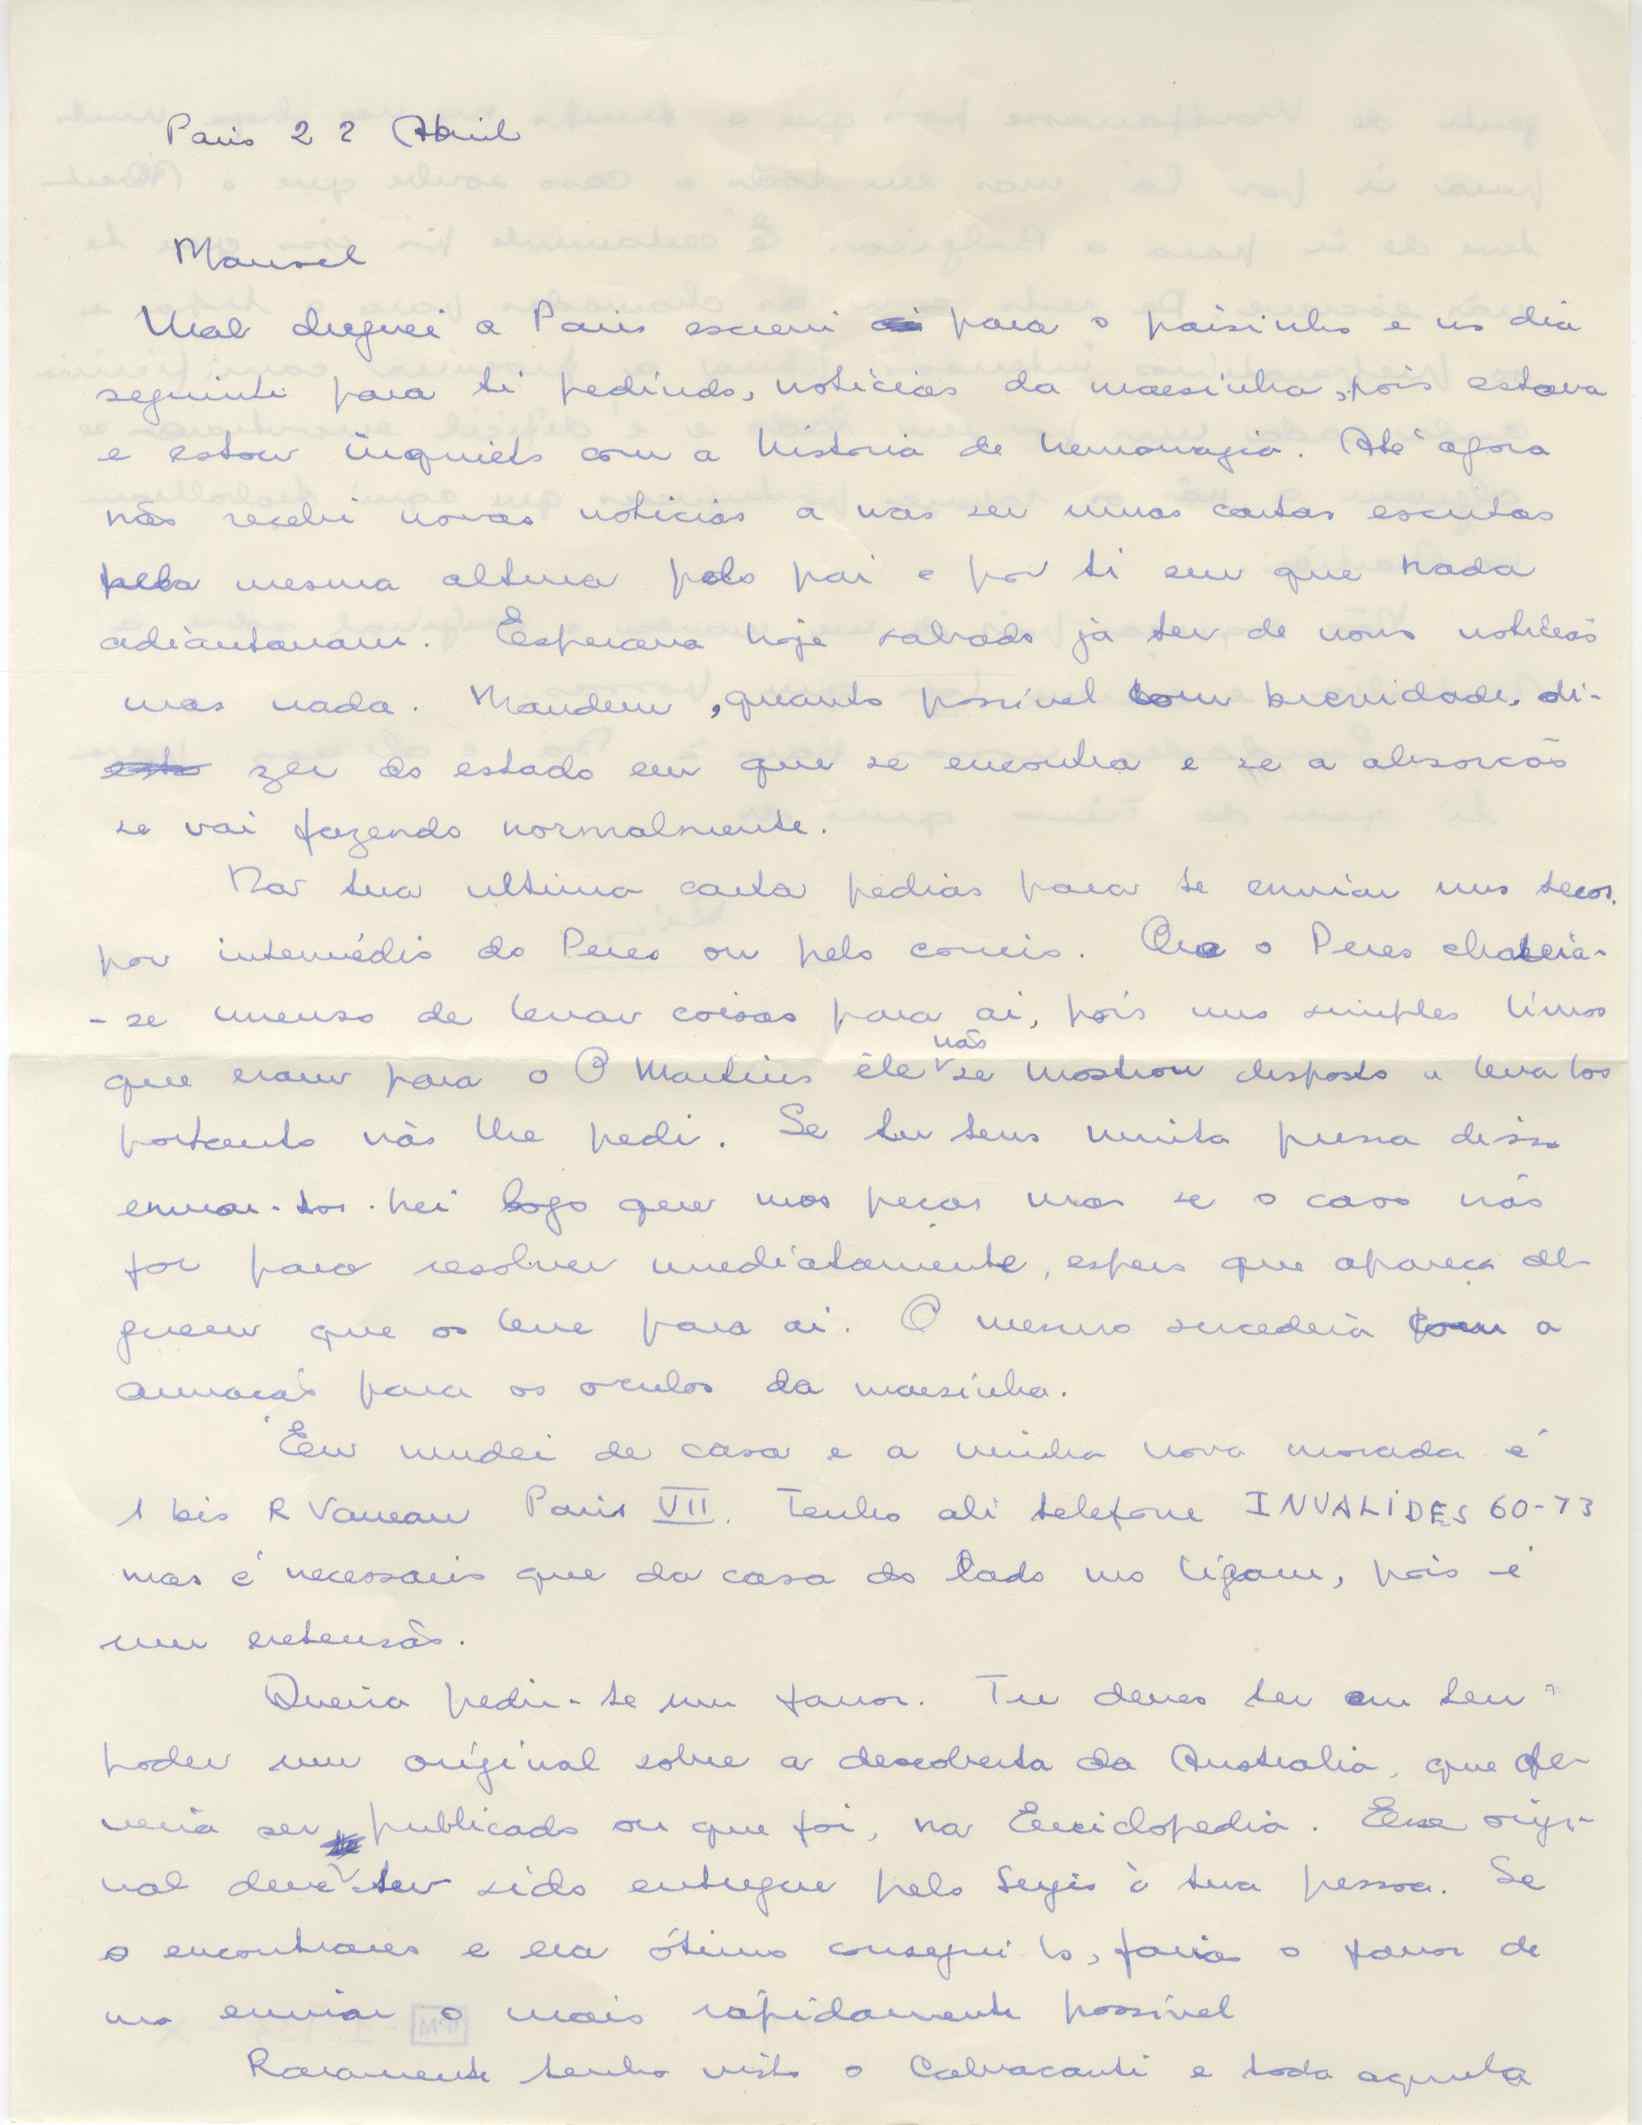 Paris 22 Abril
Manuel
Mal cheguei a Paris escrevi para o paisinho e no dia
seguinte para ti pedindo, noticias da maesinha, pois estava
e estou inquieto com a historia de hemorragia. Até agora
não recebi novas noticias a nas ser umas cartas escritas
pela mesma altura pelo pai e por ti em que nada
adiantavam. Esperava hoje sabado já ter de novo noticias
mas nada. Mandem, quanto possivel com brevidade, di-
zer do estado em que se encontra e se a absorcão
se vai fazendo normalmente.
Na tua ultima carta pedias para te enviar uns
por intermédio do Peres ou pelo correio. Ora o Peres chateia-
-se imenso de levar coisas para ai, pois uns simples livros
que eram para o O Martins êle não se mostrou disposto a leva los
portanto não lhe pedi. Se tu tens muita pressa disso
enviar-tos-hei logo que mos peças mas se o caso não
for para resolver imediatamente, espero que apareça al-
guem que os leve para ai. O mesmo sucederia com a
armação para os oculos da maesinha.
Eu mudei de casa e a minha nova morada é
1 bis R Vaneau Paris VII. Tenho ali telefone INVALIDES 60-73
mas é necessario que da casa do lado mo ligam, pois é
um extensão.
Queria pedir-te um favor. Tu deves ter em teu
poder um original sobre a descoberta da Australia, que de-
veria ser publicado ou que foi, na Enciclopedia. Esse origi-
nal deve ter sido entregue pelo Sergio à tua pessoa. Se
o encontrares e era ótimo consegui lo, farias o favor de
mo enviar o mais ràpidamente possivel
Raramente tenho visto o Calvacanti e toda aquela